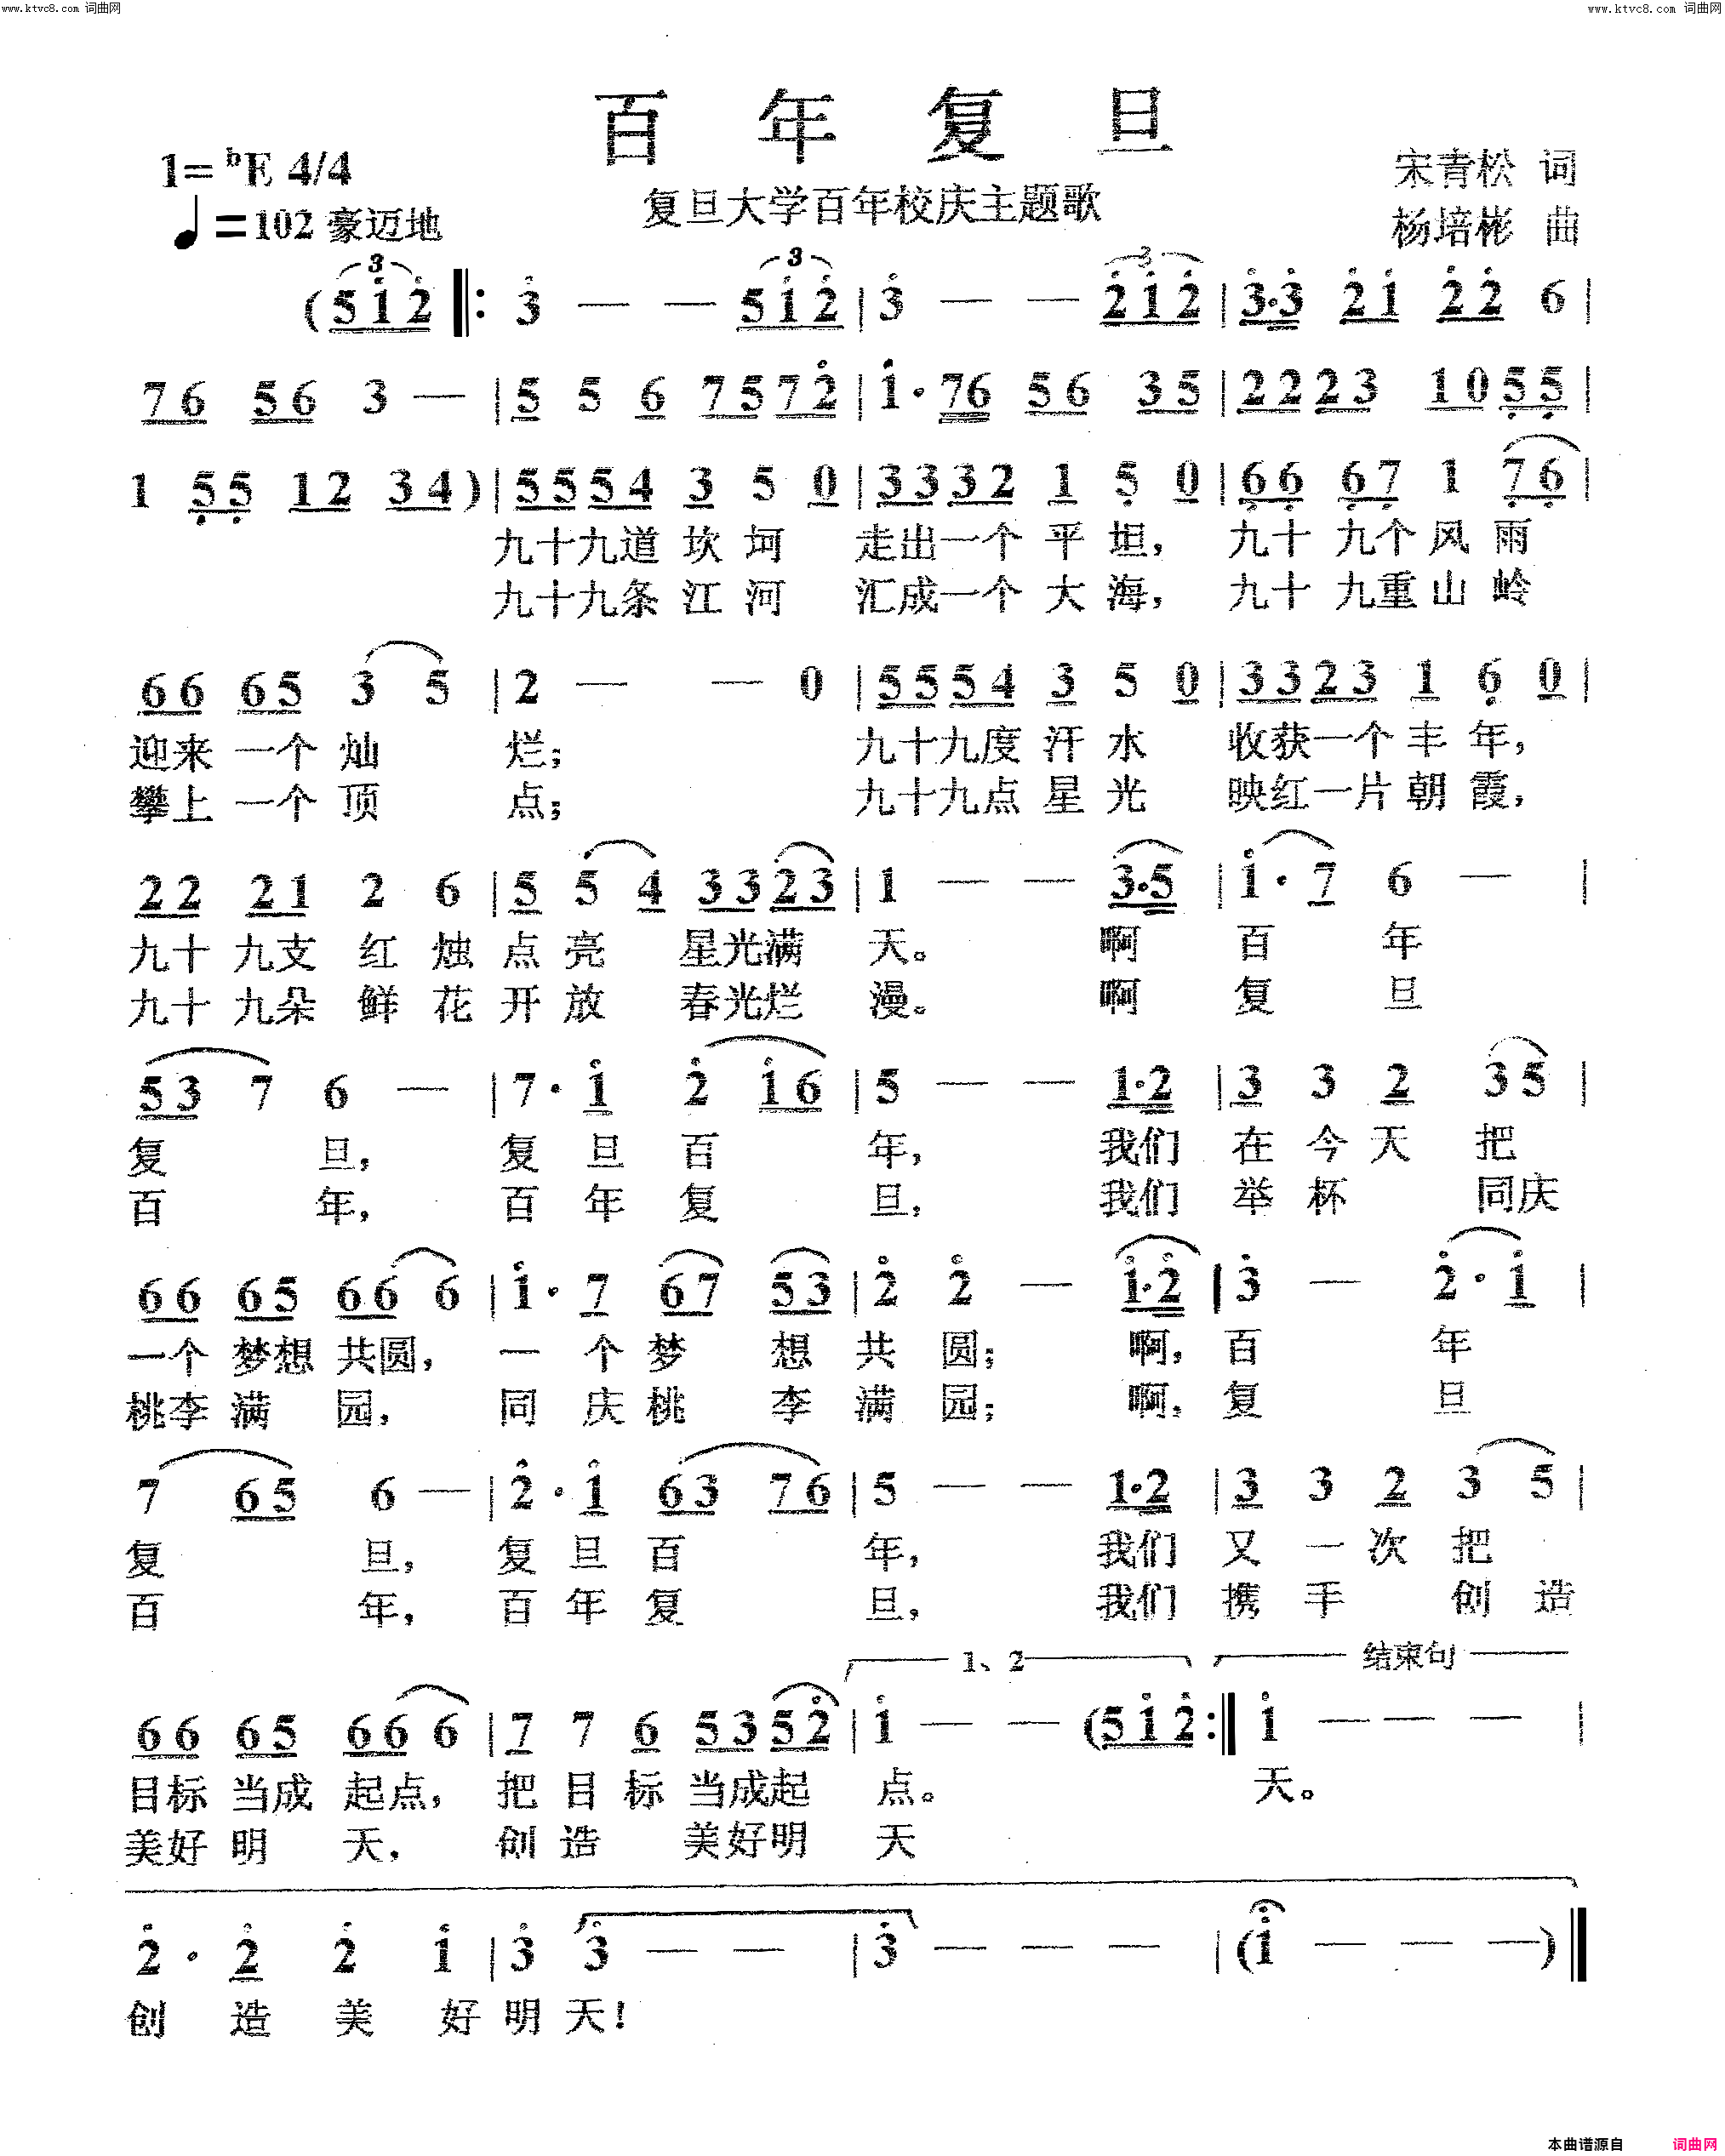 www.ktvc8.com 词曲网 www.ktvc8.com 词曲网
百年复旦
1=ᵇE 4/4
复旦大学百年校庆主题歌
宋青松 词
♩=102 豪迈地
杨培彬 曲
(5 1̇ 2̇ ‖: 3̇ — — 5 1̇ 2̇ | 3̇ — — 2̇ 1̇ 2̇ | 3̇·3̇ 2̇1̇ 2̇2̇ 6 |
76 56 3 — | 5 5 6 75 72̇ | 1̇· 76 56 35 | 22 23 10 5̣5̣ |
1 5̣5̣ 12 34 ) | 55 54 3 5 0 | 33 32 1 5̣ 0 | 6̣6̣ 6̣7̣ 1 7̣6̣ |
九十九道 坎 坷 走出一个 平 坦， 九十 九个 风 雨
九十九条 江 河 汇成一个 大 海， 九十 九重 山 岭
66 65 3 5 | 2 — — 0 | 55 54 3 5 0 | 33 23 1 6̣ 0 |
迎来 一个 灿 烂； 九十九度 汗 水 收获一个 丰 年，
攀上 一个 顶 点； 九十九点 星 光 映红一片 朝 霞，
22 21 2 6 | 5 5 4 33 23 | 1 — — 3·5 | 1̇· 7 6 — |
九十 九支 红 烛 点 亮 星光满 天。 啊 百 年
九十 九朵 鲜 花 开 放 春光烂 漫。 啊 复 旦
53 7 6 — | 7· 1̇ 2̇ 1̇6 | 5 — — 1·2 | 3 3 2 35 |
复 旦， 复 旦 百 年， 我们 在 今 天 把
百 年， 百 年 复 旦， 我们 举 杯 同庆
66 65 66 6 | 1̇· 7 67 53 | 2̇ 2̇ — 1̇·2̇ | 3̇ — 2̇· 1̇ |
一个 梦想 共圆， 一 个 梦 想 共 圆； 啊，百 年
桃李 满 园， 同 庆 桃 李 满 园； 啊，复 旦
7 65 6 — | 2̇· 1̇ 63 76 | 5 — — 1·2 | 3 3 2 3 5 |
复 旦， 复 旦 百 年， 我们 又 一 次 把
百 年， 百 年 复 旦， 我们 携 手 创 造
1、2 结束句
66 65 66 6 | 7 7 6 53 52̇ | 1̇ — — (51̇2̇ :‖ 1̇ — — — |
目标 当成 起点， 把 目 标 当成起 点。 天。
美好 明 天， 创 造 美好明 天
2̇· 2̇ 2̇ 1̇ | 3̇ 3̇ — — | 3̇ — — — | (1̇ — — —) ‖
创 造 美 好 明 天！
本曲谱源自 词曲网